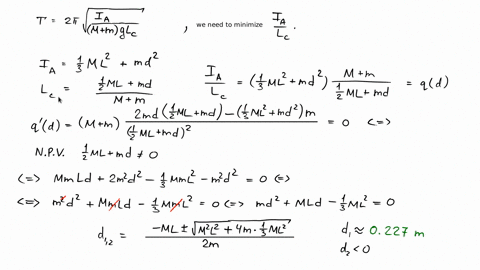 T = 2π √(I_A / ((M+m)gL_c)) , we need to minimize I_A / L_c .
I_A = 1/3 ML² + md²
L_c = (1/2 ML + md) / (M+m)
I_A / L_c = (1/3 ML² + md²) (M+m) / (1/2 ML + md) = q(d)
q'(d) = (M+m) (2md (1/2 ML + md) - (1/3 ML² + md²) m) / (1/2 ML + md)² = 0 <=>
N.P.V. 1/2 ML + md ≠ 0
<=> MmLd + 2m²d² - 1/3 MmL² - m²d² = 0 <=>
<=> m²d² + MmLd - 1/3 MmL² = 0 <=> md² + MLd - 1/3 ML² = 0
d_1,2 = (-ML ± √(M²L² + 4m · 1/3 ML²)) / 2m
d_1 ≈ 0.227 m
d_2 < 0